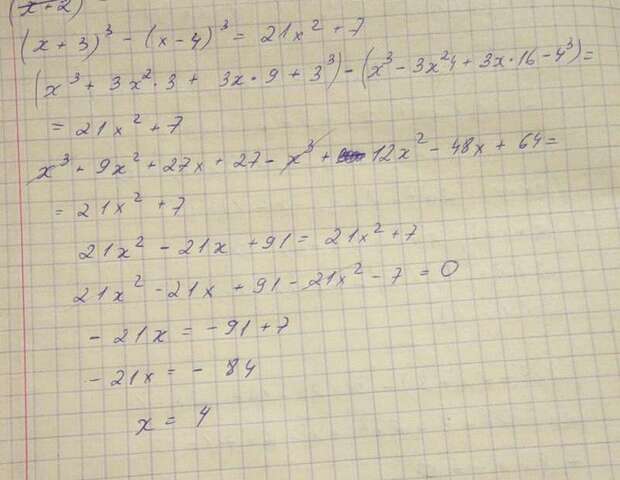 (x+2)
(x + 3)³ - (x - 4)³ = 21x² + 7
(x³ + 3x²·3 + 3x·9 + 3³) - (x³ - 3x²4 + 3x·16 - 4³) =
= 21x² + 7
x³ + 9x² + 27x + 27 - x³ + 12x² - 48x + 64 =
= 21x² + 7
21x² - 21x + 91 = 21x² + 7
21x² - 21x + 91 - 21x² - 7 = 0
- 21x = - 91 + 7
- 21x = - 84
x = 4